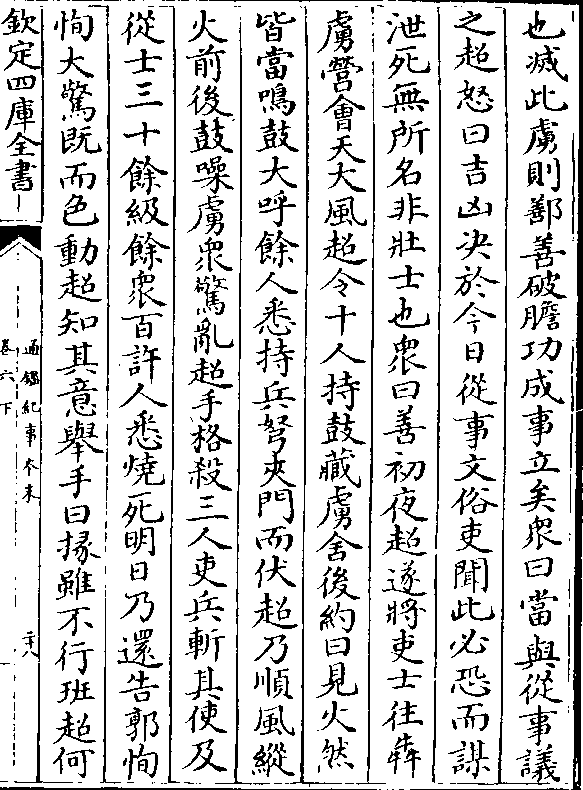 也滅此虜則鄯善破膽功成事立矣衆曰當與從事議
之超怒曰吉凶決於今日從事文俗吏聞此必恐而謀
泄死無所名非壯士也衆曰善初夜超遂將吏士往犇
虜營會天大風超令十人持鼓藏虜舍後約曰見火然
皆當鳴鼓大呼餘人悉持兵弩夾門而伏超乃順風縱
火前後鼓噪虜衆驚亂超手格殺三人吏兵斬其使及
從士三十餘級餘衆百許人悉燒死明日乃還告郭恂
恂大驚既而色動超知其意舉手曰掾雖不行班超何
欽定四庫全書
通鑑紀事本末
卷六下
二十八